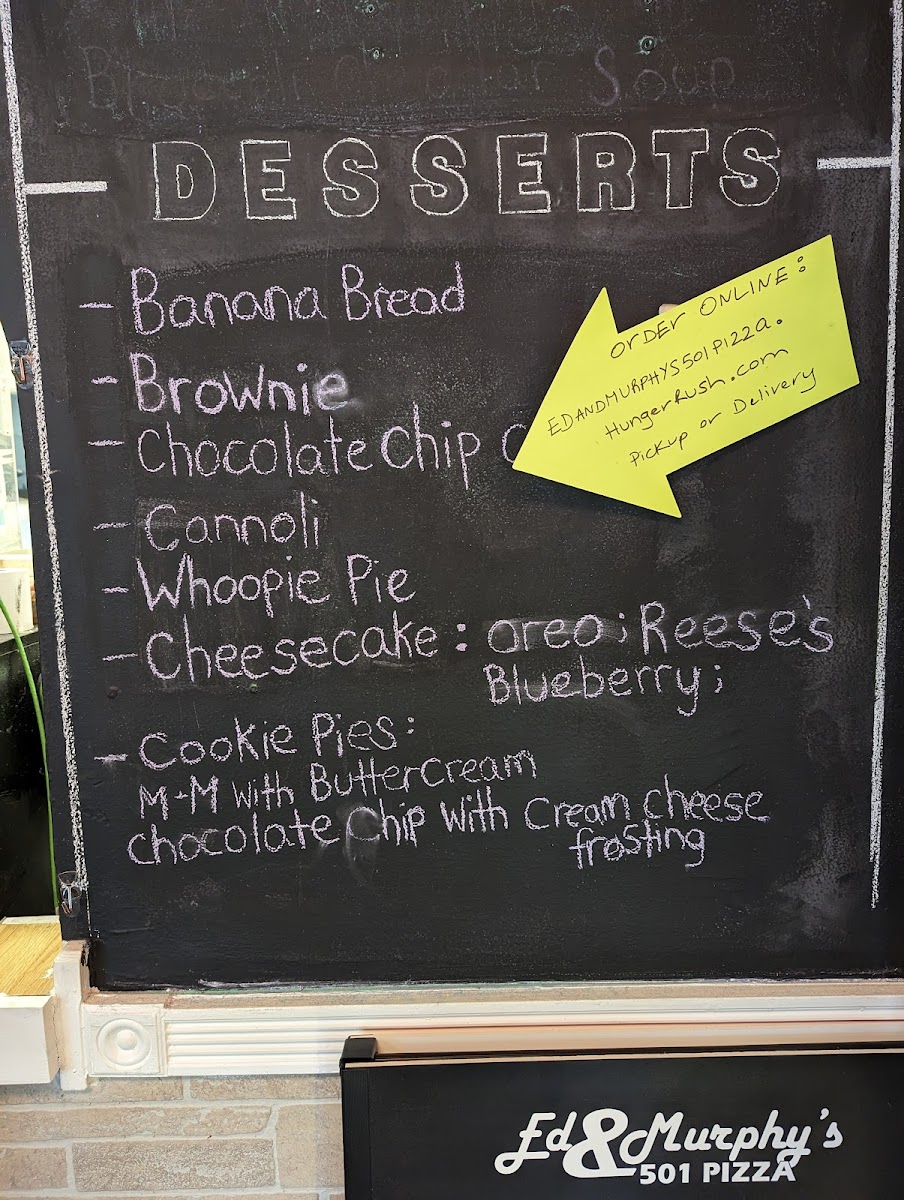 Broccoli Cheddar Soup
DESSERTS
- Banana Bread
- Brownie
- Chocolate Chip C
- Cannoli
- Whoopie Pie
- Cheesecake: oreo; Reese's
Blueberry;
- Cookie Pies:
M+M With ButterCream
chocolate Chip With Cream cheese
frosting
Order Online:
EDANDMURPHYS501PIZZA.
HungerRush.com
Pickup or Delivery
Ed & Murphy's
501 PIZZA